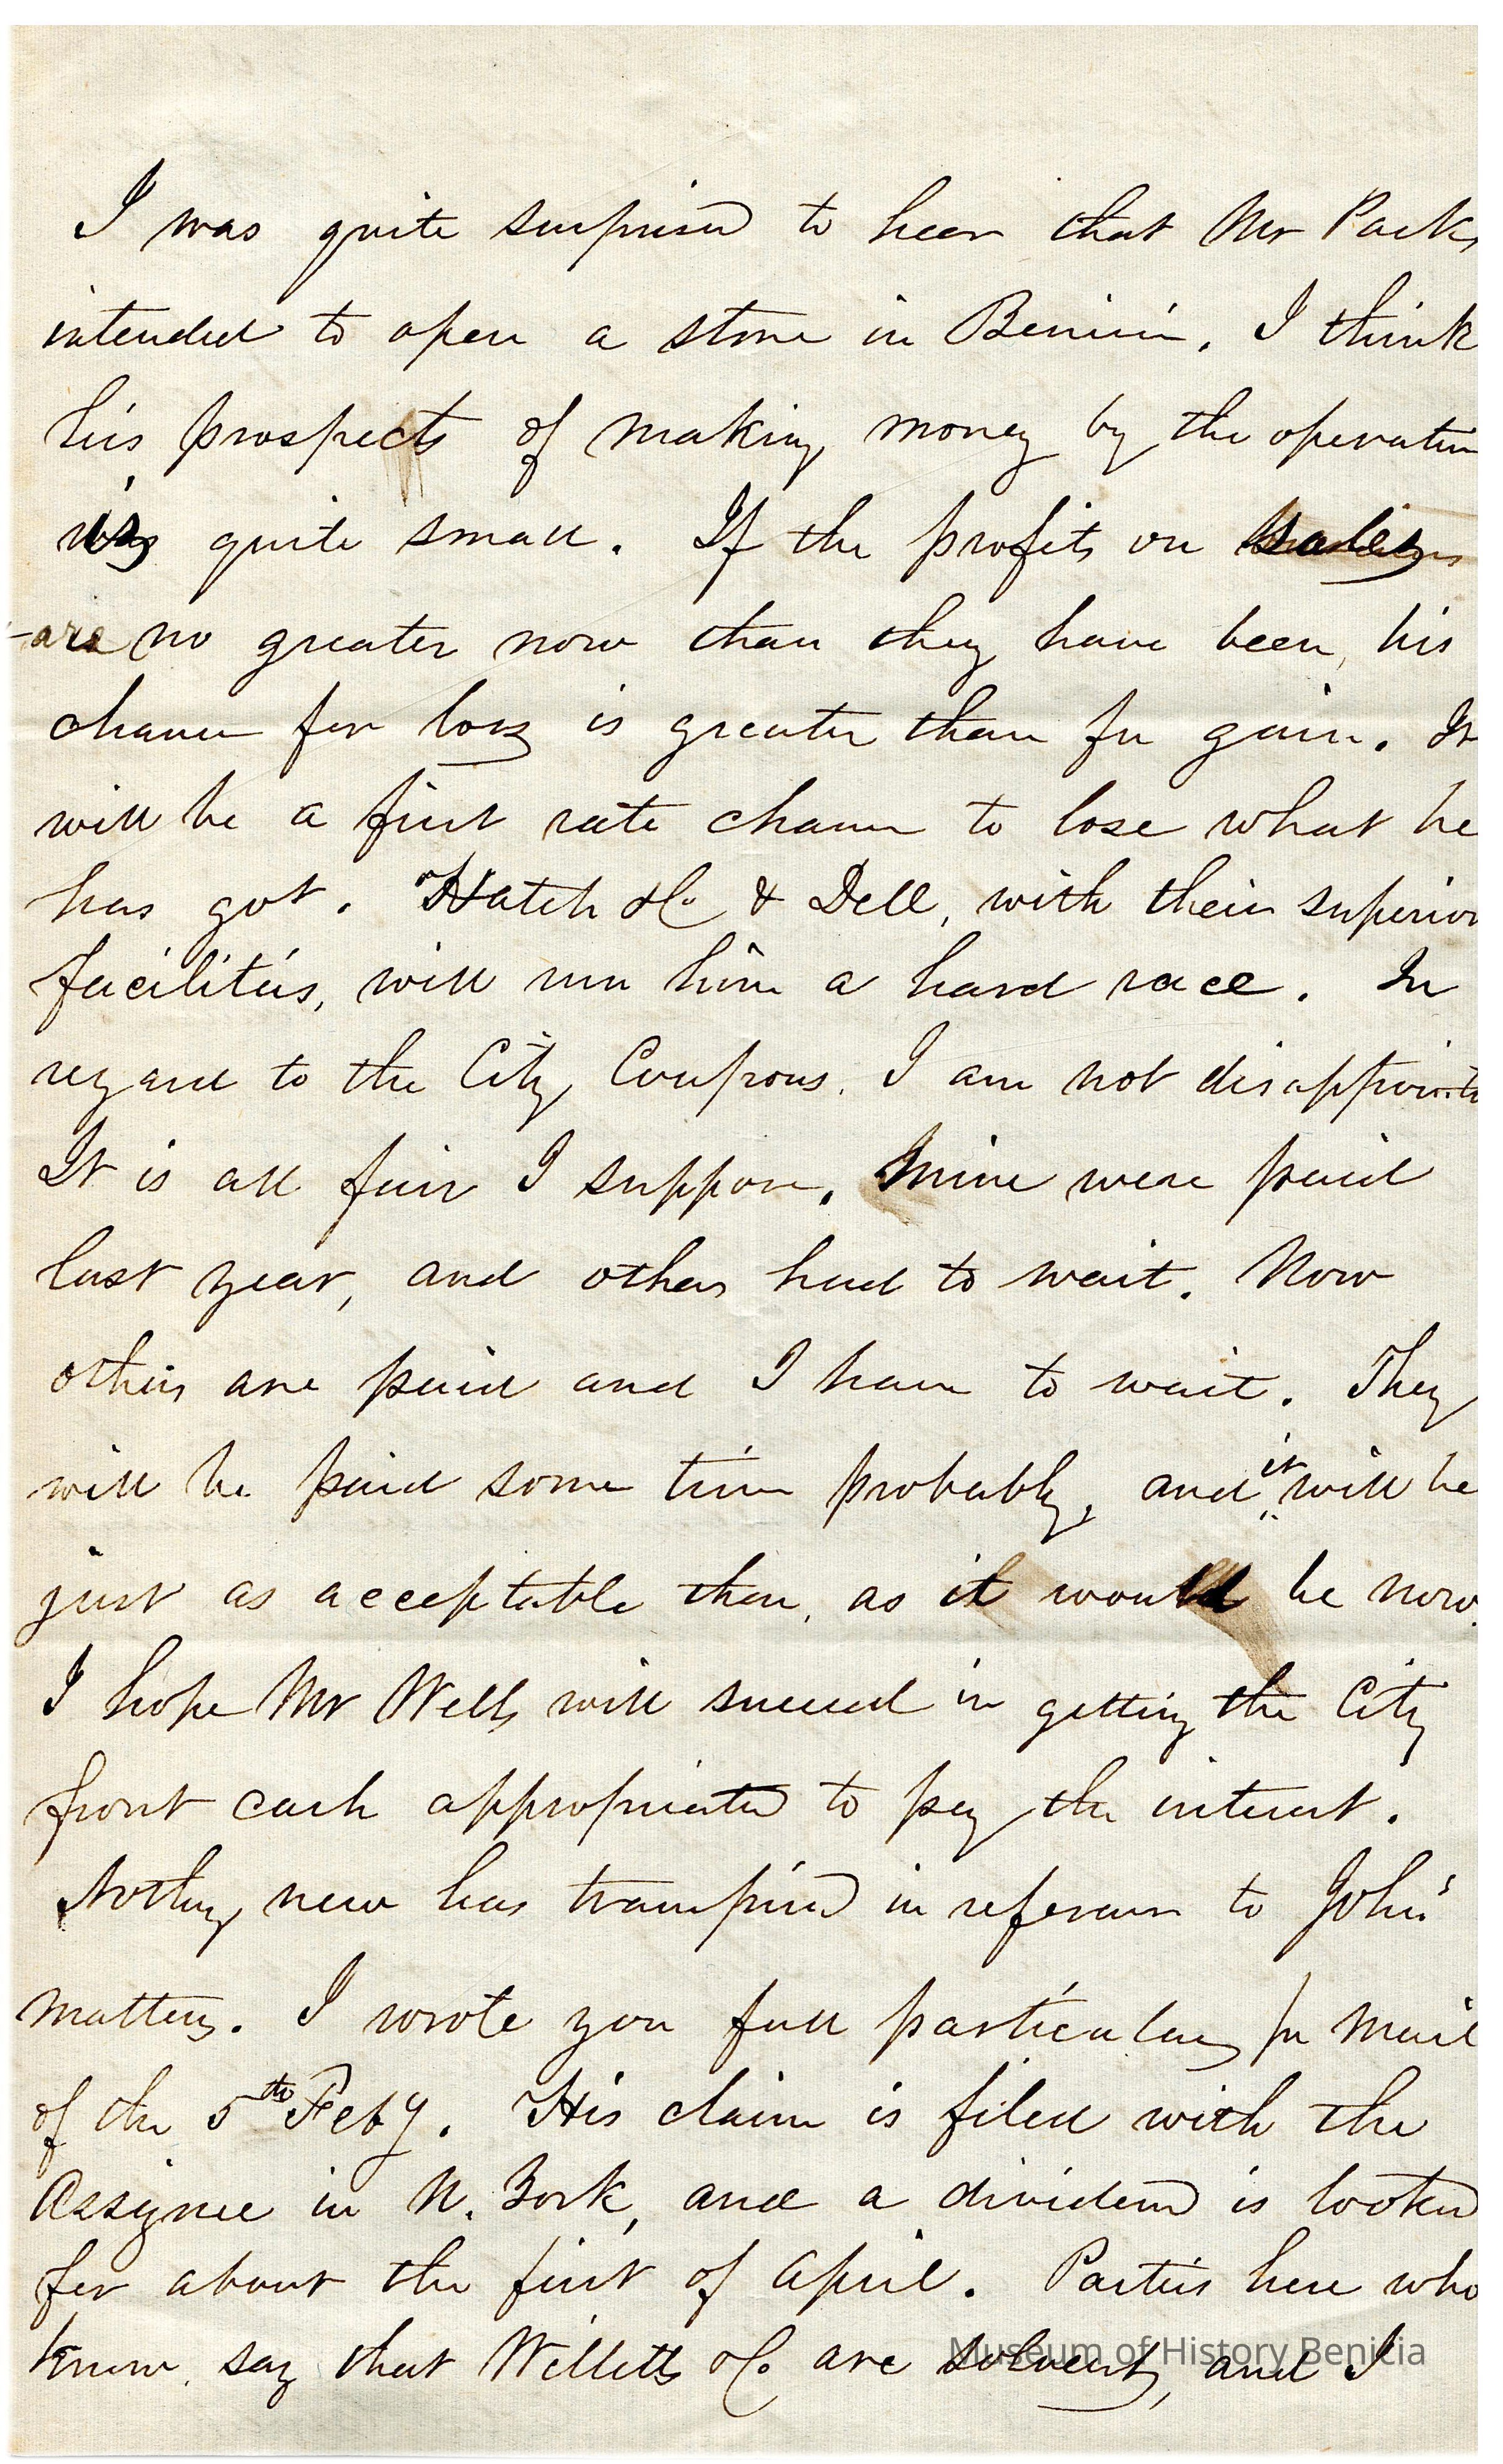 I was quite surprised to hear that Mr Parks
intended to open a store in Benicia. I think
his prospects of making money by the operation
is quite small. If the profits on sales
are no greater now than they have been, his
chance for loss is greater than for gain. It
will be a first rate chance to lose what he
has got. Hatch & Co. & Dell, with their superior
facilities, will run him a hard race. In
regard to the City Coupons. I am not disappointed
It is all fair I suppose. Mine were paid
last year, and others had to wait. Now
others are paid and I have to wait. They
will be paid some time probably, and it will be
just as acceptable then, as it would be now.
I hope Mr Wells will succeed in getting the City
front cash appropriated to pay the interest.
Nothing new has transpired in reference to John's
matters. I wrote you full particulars pr Mail
of the 5th Feby. His claim is filed with the
Assignee in N. York, and a dividend is looked
for about the first of April. Parties here who
know, say that Willetts & Co. are solvent, and I
Museum of History Benicia